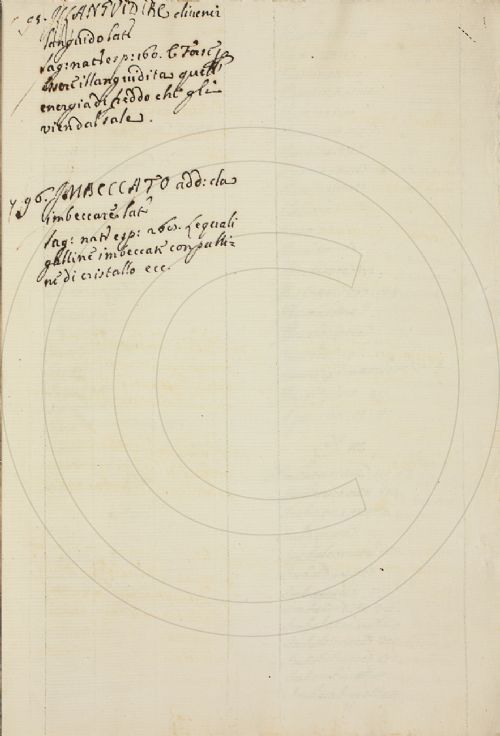 95. ILLANGUIDIRE divenir
languido lat:
Sag: nat: esp: 160. E forse p
essere illanguidita quella
energia di freddo che gli
vien dal sale.
96. IMBECCATO add: da
imbeccare lat:
Sag: nat: esp: 260. Le quali
galline imbeccate con palli=
ne di cristallo ecc.